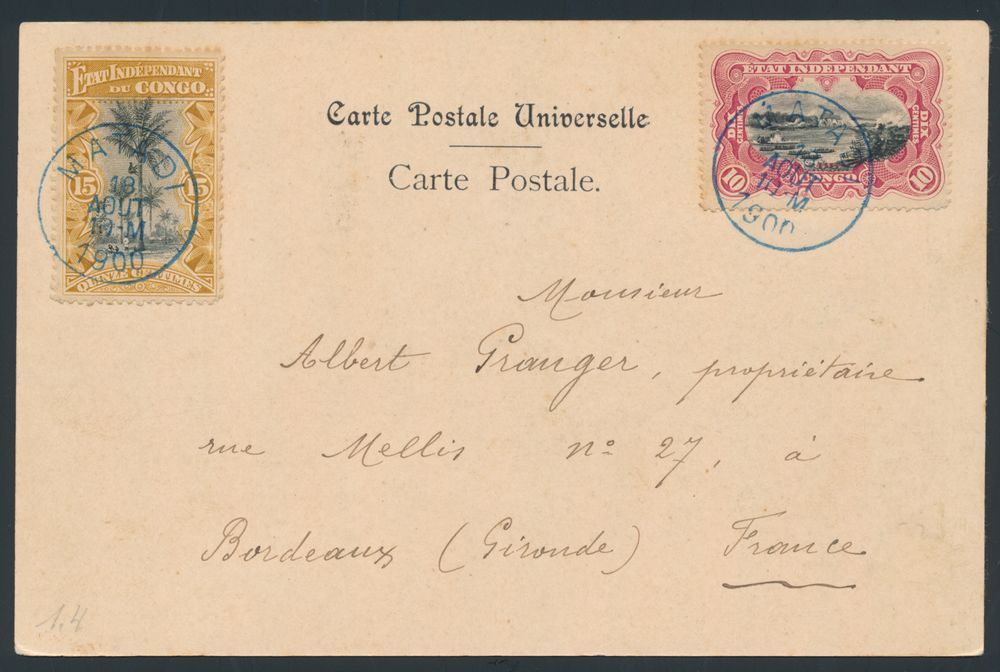 ETAT INDÉPENDANT
DU CONGO
15 15
QUINZE CENTIMES
MATADI
18
AOUT
10-M
1900
ETAT INDÉPENDANT
DIX CENTIMES
DIX CENTIMES
10 CONGO 10
AOUT
1900
Carte Postale Universelle
Carte Postale.
Monsieur
Albert Granger, propriétaire
rue Mellis nº 27, à
Bordeaux (Gironde) France
1.4